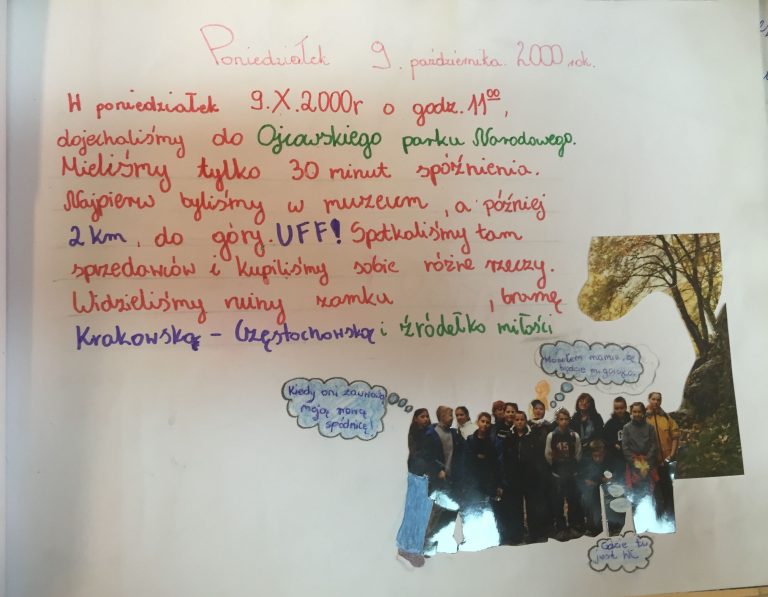 Poniedziałek 9. października. 2000 rok.
W poniedziałek 9.X.2000r o godz. 11⁰⁰,
dojechaliśmy do Ojcowskiego parku Narodowego.
Mieliśmy tylko 30 minut spóźnienia.
Najpierw byliśmy w muzeum, a później
2 km, do góry. UFF! Spotkaliśmy tam
sprzedawców i kupiliśmy sobie różne rzeczy.
Widzieliśmy ruiny zamku , bramę
Krakowską - Częstochowską i źródełko miłości
Kiedy oni zauważą
moją nową
spódnicę!
Mówiłem mamie, że
będzie mi gorąco.
15
Gdzie tu
jest WC